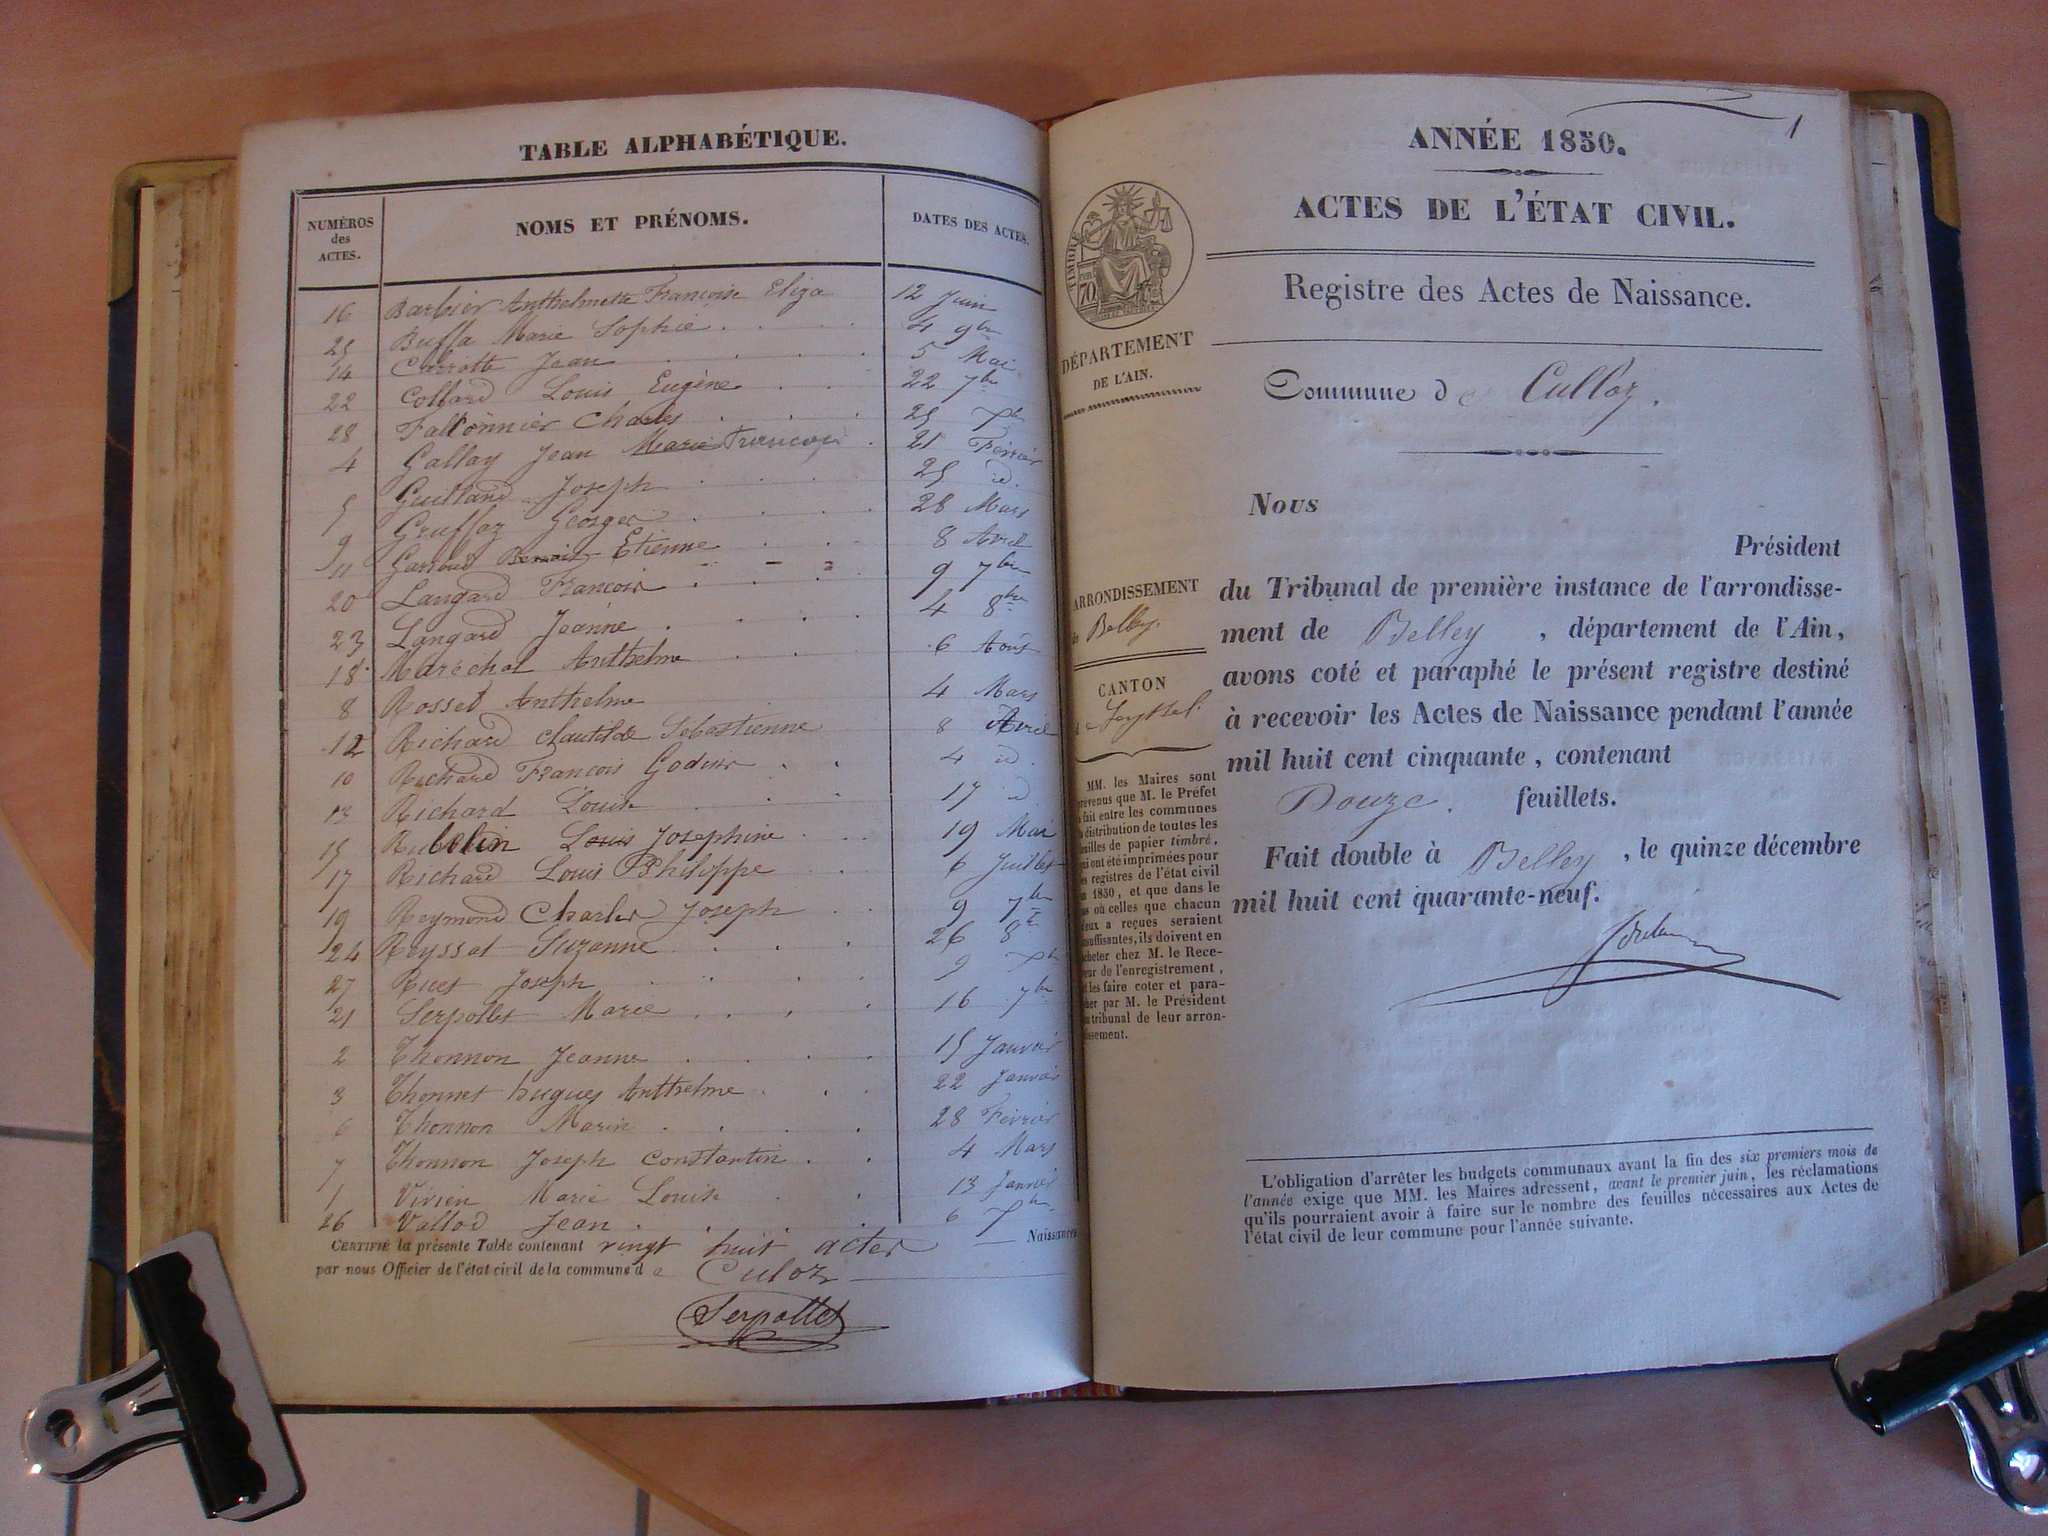 TABLE ALPHABÉTIQUE.
NUMÉROS des ACTES. NOMS ET PRÉNOMS. DATES DES ACTES.
16 Barbier Anthelmette Françoise Eliza 12 Juin
25 Buffa Marie Sophie 4 9bre
14 Jean 5 Mai
22 Collard Louis Eugène 22 7bre
28 Falconnier Charles 25 Xbre
4 Gallay Jean Marie François 21 Février
5 Guilland Joseph 25 id.
9 Gruffaz Georges 28 Mars
11 Benoit Etienne 8 Avril
20 Langard François 9 7bre
23 Langard Jeanne 4 8bre
18 Maréchal Anthelme 6 Août
8 Rosset Anthelme 4 Mars
12 Richard Clautilde Sébastienne 8 Avril
10 Richard François 4 id.
13 Richard Louise 17 id
15 Louis Josephine 19 Mai
17 Richard Louis Philippe 6 Juillet
19 Reymond Charles Joseph 9 7bre
24 Reyssat Suzanne 26 8bre
27 Joseph 9 Xbre
21 Serpollet Marie 16 7bre
2 Thonnon Jeanne 15 Janvier
3 Thonnet hugues Anthelme 22 Janvier
6 Thonnon Marie 28 Février
7 Thonnon Joseph Constantin 4 Mars
1 Vivien Marie Louise 13 Janvier
26 Vallod Jean 6
CERTIFIÉ la présente Table contenant vingt huit actes Naissances
par nous Officier de l'état civil de la commune d e Culoz
Serpollet
1
ANNÉE 1850.
ACTES DE L'ÉTAT CIVIL.
Registre des Actes de Naissance.
TIMBRE
70
DÉPARTEMENT
DE L'AIN.
Commune de Culloz.
Nous
Président
du Tribunal de première instance de l'arrondisse-
ment de Belley, département de l'Ain,
avons coté et paraphé le présent registre destiné
à recevoir les Actes de Naissance pendant l'année
mil huit cent cinquante, contenant
Douze feuillets.
Fait double à Belley, le quinze décembre
mil huit cent quarante-neuf.
ARRONDISSEMENT
Belley.
CANTON
Seyssel.
MM. les Maires sont
prévenus que M. le Préfet
fait entre les communes
distribution de toutes les
feuilles de papier timbré,
qui ont été imprimées pour
les registres de l'état civil
1850, et que dans le
cas où celles que chacun
d'eux a reçues seraient
insuffisantes, ils doivent en
acheter chez M. le Rece-
veur de l'enregistrement,
et les faire coter et para-
pher par M. le Président
du tribunal de leur arron-
dissement.
L'obligation d'arrêter les budgets communaux avant la fin des six premiers mois de
l'année exige que MM. les Maires adressent, avant le premier juin, les réclamations
qu'ils pourraient avoir à faire sur le nombre des feuilles nécessaires aux Actes de
l'état civil de leur commune pour l'année suivante.